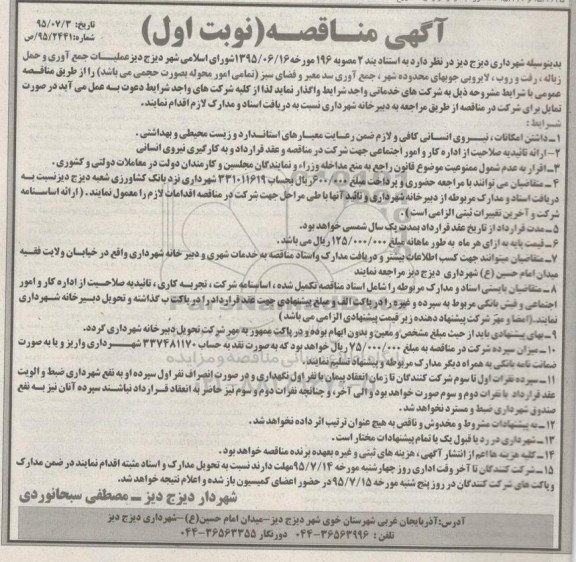 تاریخ: ۹۵/۰۷/۳
شماره: ۹۵/۲۴۴۱/ص
آگهی مناقصه (نوبت اول)
بدینوسیله شهرداری دیزج دیز در نظر دارد به استناد بند ۲ مصوبه ۱۹۶ مورخه ۱۳۹۵/۰۶/۱۶ شورای اسلامی شهر دیزج دیز عملیات جمع آوری و حمل
زباله، رفت و روب، لایروبی جوبهای محدوده شهر، جمع آوری سد معبر و فضای سبز (تمامی امور محوله بصورت حجمی می باشد) را از طریق مناقصه
عمومی با شرایط مشروحه ذیل به شرکت های خدماتی واجد شرایط واگذار نماید لذا از کلیه شرکت های واجد شرایط دعوت به عمل می آید در صورت
تمایل برای شرکت در مناقصه از طریق مراجعه به دبیرخانه شهرداری نسبت به دریافت اسناد و مدارک لازم اقدام نمایند.
شرایط:
۱ـ داشتن امکانات، نیروی انسانی کافی و لازم ضمن رعایت معیارهای استاندارد و زیست محیطی و بهداشتی.
۲ـ ارائه تائیدیه صلاحیت از اداره کار و امور اجتماعی جهت شرکت در مناقصه و عقد قرارداد و به کارگیری نیروی انسانی
۳ـ اقرار به عدم شمول ممنوعیت موضوع قانون راجع به منع مداخله وزراء و نمایندگان مجلسین و کارمندان دولت در معاملات دولتی و کشوری.
۴ـ متقاضیان می توانند با مراجعه حضوری و پرداخت مبلغ ۶۰۰/۰۰۰ ریال بحساب ۳۳۱۰۱۱۶۱۹ شهرداری نزد بانک کشاورزی شعبه دیزج دیز نسبت به
دریافت اسناد و مدارک مربوطه از دبیرخانه شهرداری و تائید آنها با طی مراحل جهت شرکت در مناقصه اقدامات لازم را معمول نمایند. (ارائه اساسنامه
شرکت و آخرین تغییرات ثبتی الزامی است)
۵ـ مدت قرارداد از تاریخ عقد قرارداد بمدت یک سال شمسی خواهد بود.
۶ـ قیمت پایه به ازای هر ماه به طور ماهانه مبلغ ۱۲۵/۰۰۰/۰۰۰ ریال می باشد.
۷ـ متقاضیان میتوانند جهت کسب اطلاعات بیشتر و دریافت مدارک و اسناد مناقصه به خدمات شهری و دبیرخانه شهرداری واقع در خیابان ولایت فقیه
میدان امام حسین (ع) شهرداری دیزج دیز مراجعه نمایند
۸ـ متقاضیان بایستی اسناد و مدارک مربوطه را شامل اسناد مناقصه تکمیل شده، اساسنامه شرکت، تجربه کاری، تائیدیه صلاحیت از اداره کار و امور
اجتماعی و فیش بانکی مربوط به سپرده و غیره را در پاکت الف و مبلغ پیشنهادی جهت عقد قرارداد را در پاکت ب گذاشته و تحویل دبیرخانه شهرداری
نمایند. (امضا و مهر شرکت پیشنهاد دهنده زیر قیمت پیشنهادی الزامی می باشد)
۹ـ بهای پیشنهادی باید از حیث مبلغ مشخص و معین و بدون ابهام بوده و در پاکت ممهور به مهر شرکت تحویل دبیرخانه شهرداری گردد.
۱۰ـ میزان سپرده شرکت در مناقصه به مبلغ ۷۵/۰۰۰/۰۰۰ ریال خواهد بود که به صورت نقد به حساب ۳۳۷۴۸۱۱۷۰ شهرداری واریز و یا به صورت
ضمانت نامه بانکی به همراه دیگر مدارک مربوطه و پیشنهاد تسلیم نمایند.
۱۱ـ سپرده نفرات اول تا سوم شرکت کنندگان تا زمان انعقاد پیمان با نفر اول نگهداری و در صورت انصراف نفر اول سپرده او به نفع شهرداری ضبط و الویت
عقد قرارداد با نفرات دوم و سوم صورت خواهد بود و الی آخر، و چنانچه نفرات دوم و سوم نیز حاضر به انعقاد قرارداد نباشند سپرده آنان نیز به نفع
صندوق شهرداری ضبط و مسترد نخواهد شد.
۱۲ـ به پیشنهادات مشروط و مخدوش و ناقص به هیچ عنوان ترتیب اثر داده نخواهد شد.
۱۳ـ شهرداری در رد یا قبول یک یا تمام پیشنهادات مختار است.
۱۴ـ کلیه هزینه ها اعم از انتشار آگهی، هزینه های ثبتی و غیره بعهده برنده مناقصه خواهد بود.
۱۵ـ شرکت کنندگان تا آخر وقت اداری روز چهارشنبه مورخه ۹۵/۷/۱۴ مهلت دارند نسبت به تحویل مدارک و اسناد مثبته اقدام نمایند در ضمن مدارک
و پاکت های شرکت کنندگان در روز پنج شنبه مورخه ۹۵/۷/۱۵ در حضور اعضای کمیسیون باز شده و اعلام نتیجه خواهد شد.
شهردار دیزج دیز ـ مصطفی سبحانوردی
آدرس: آذربایجان غربی شهرستان خوی شهر دیزج دیز-میدان امام حسین(ع)-شهرداری دیزج دیز
تلفن: ۳۶۵۶۳۹۹۶-۰۴۴ دورنگار ۳۶۵۶۳۳۵۵-۰۴۴